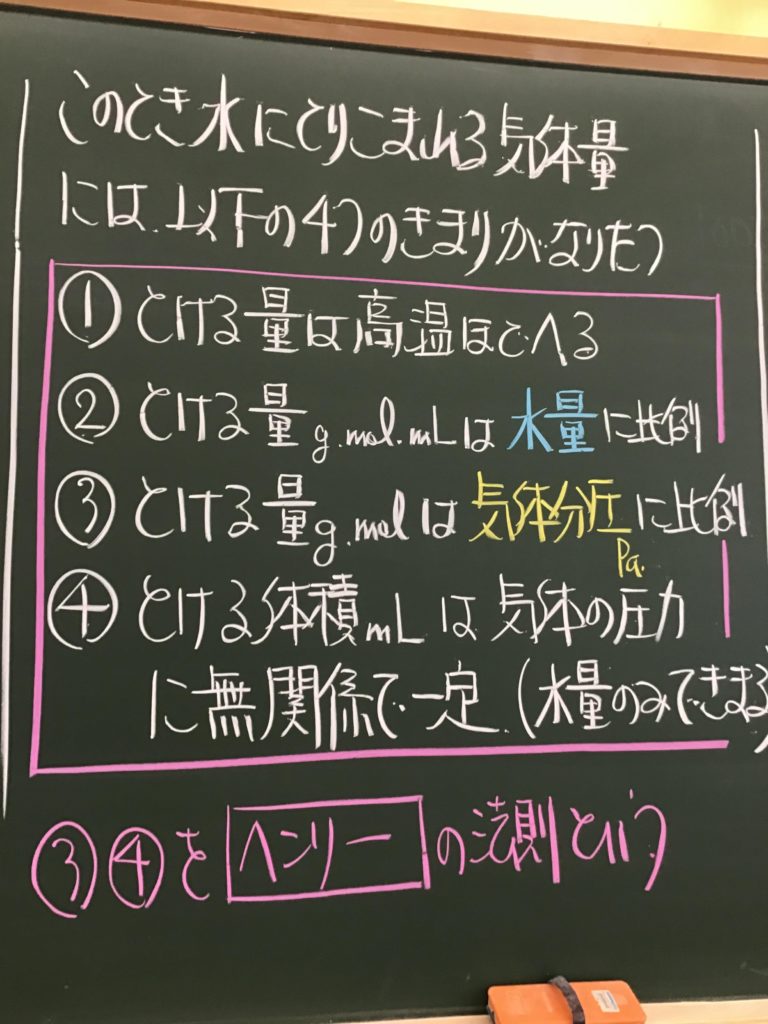 このとき水にとりこまれる気体量
には、以下の4つのきまりがなりたつ
① とける量は高温ほどへる
② とける量g.mol.mLは水量に比例
③ とける量g.molは気体分圧に比例
Pa.
④ とける体積mLは気体の圧力
に無関係で一定.(水量のみできまる)
③④をヘンリーの法則という